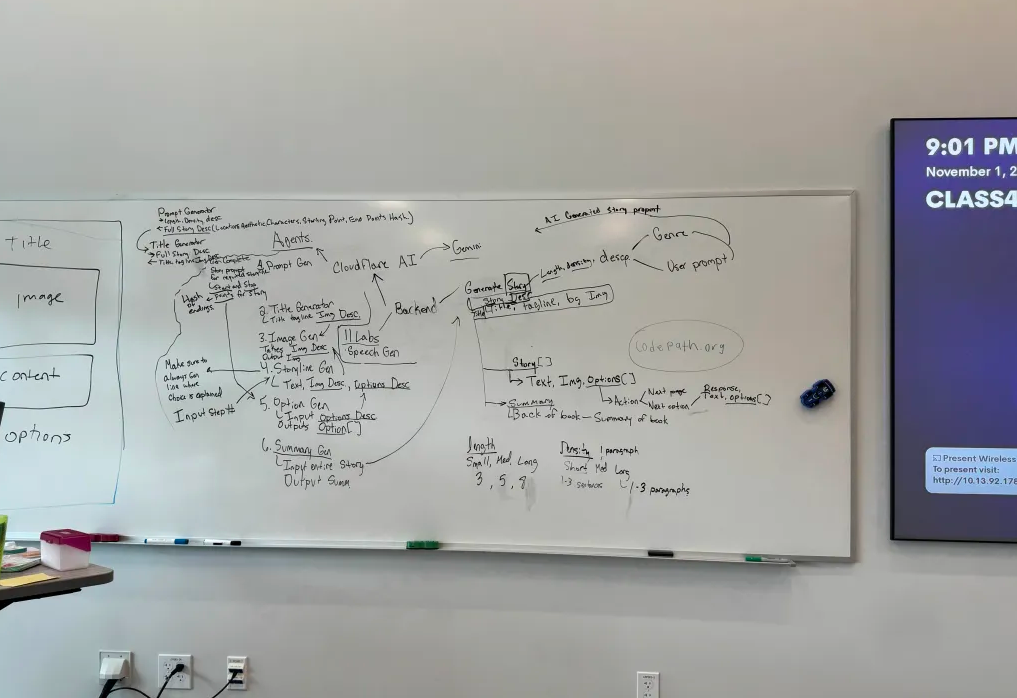 Title
Image
Content
Options
Prompt Generator
Full Story Desc (Location, Aesthetic, Characters, Starting Point, End Points Hash)
Title Generator
Full Story Desc
Title tagline
Story prompt
for
Start and
Points for Story
Hash
of
endings
Make sure to
always Gen
line where
choice is explained
Input Step #
Agents
Prompt Gen
2. Title Generator
Title tagline Img Desc
3. Image Gen
Takes Img Desc
Output Img
4. Storyline Gen
Text, Img Desc, Options Desc
5. Option Gen
Input Options Desc
Outputs Option[]
6. Summary Gen
Input entire Story
Output Summ
Cloudflare AI
Gemini
Backend
11 Labs
Speech Gen
AI Generated Story prompt
Generate Story
Length, density, desc
Genre
User prompt
Story Desc
Title, tagline, bg Img
codepath.org
Story[]
Text, Img, Options[]
Action
Next page
Next option
Response,
Text, options[]
Summary
Back of book - Summary of book
length
Small, Med, Long
3, 5, 8
Density
1 paragraph
Short Med Long
1-3 sentences
1-3 paragraphs
9:01 PM
November 1, 2
CLASS4
Present Wireless
To present visit:
http://10.13.92.178